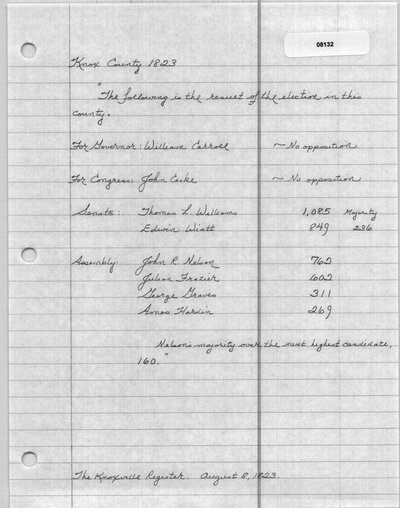 08132
Knox County 1823
"The following is the result of the election in this
county.
For Governor: William Carroll ~ No opposition
For Congress: John Cocke ~ No opposition
Senate: Thomas L. Williams 1,085 Majority
Edwin Wiatt 849 236
Assembly: John R. Nelson 762
Julian Frazier 602
George Graves 311
Amos Hardin 269
Nelson's majority over the next highest candidate,
160."
The Knoxville Register. August 8, 1823.